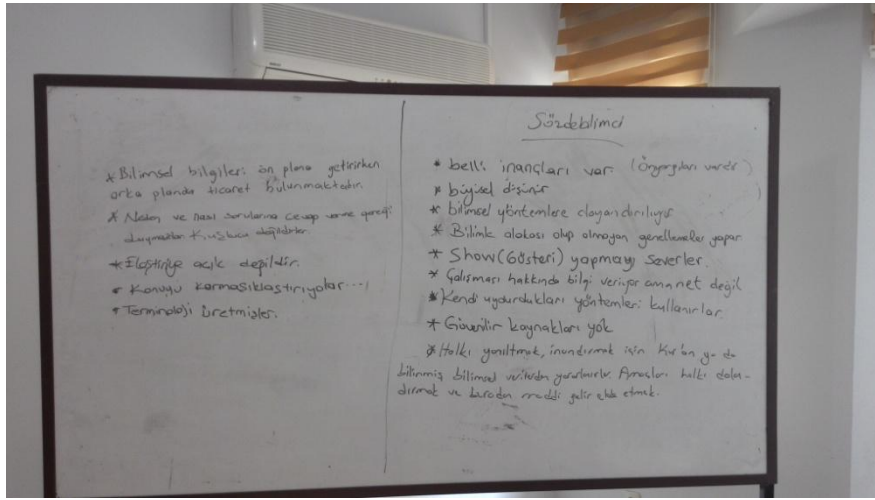 * Bilimsel bilgileri ön plana getirirken
arka planda ticaret bulunmaktadır.
* Neden ve nasıl sorularına cevap verme gereği
duymazlar. Kuşkucu değildirler.
* Eleştiriye açık değildir.
* Konuyu karmaşıklaştırıyolar....
* Terminoloji üretmişler.
Sözdeblimci
* belli inançları var. (Önyargıları vardır)
* düşünür
* bilimsel yöntemlere dayandırılıyor
* Bilimle alakası olup olmayan genellemeler yapar.
* Show (Gösteri) yapmayı severler.
* Çalışması hakkında bilgi veriyor ama net değil
* Kendi uydurdukları yöntemleri kullanırlar
* Güvenilir kaynakları yok
* Halkı yanıltmak, inandırmak için Kur'an ya da
bilinmiş bilimsel verilerden yararlanırlar. Amaçları halkı dolan-
dırmak ve buradan maddi gelir elde etmek.